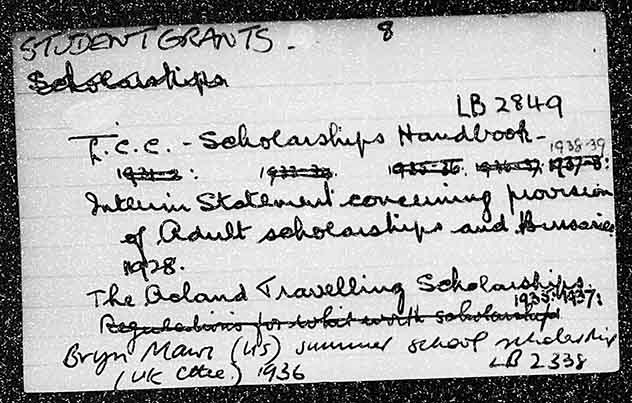 STUDENT GRANTS. 8
Scholarships
LB 2849
T.C.C. - Scholarships Handbook -
1938-39
1931-2: 1933-34. 1935-36. 1936-37. 1937-8:
Interim Statement concerning provision
of Adult scholarships and Bursaries
1928.
The Acland Travelling Scholarships
1935: 1937:
Regulations for scholarships
Bryn Mawr (US) summer school scholarship
(UK Cttee.) 1936 LB 2338